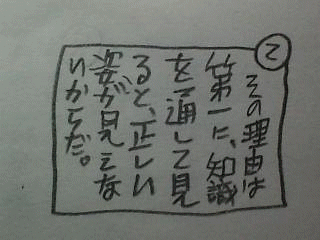 2
その理由は
第一に、知識
を通して見
ると、正しい
姿が見えな
いからだ。